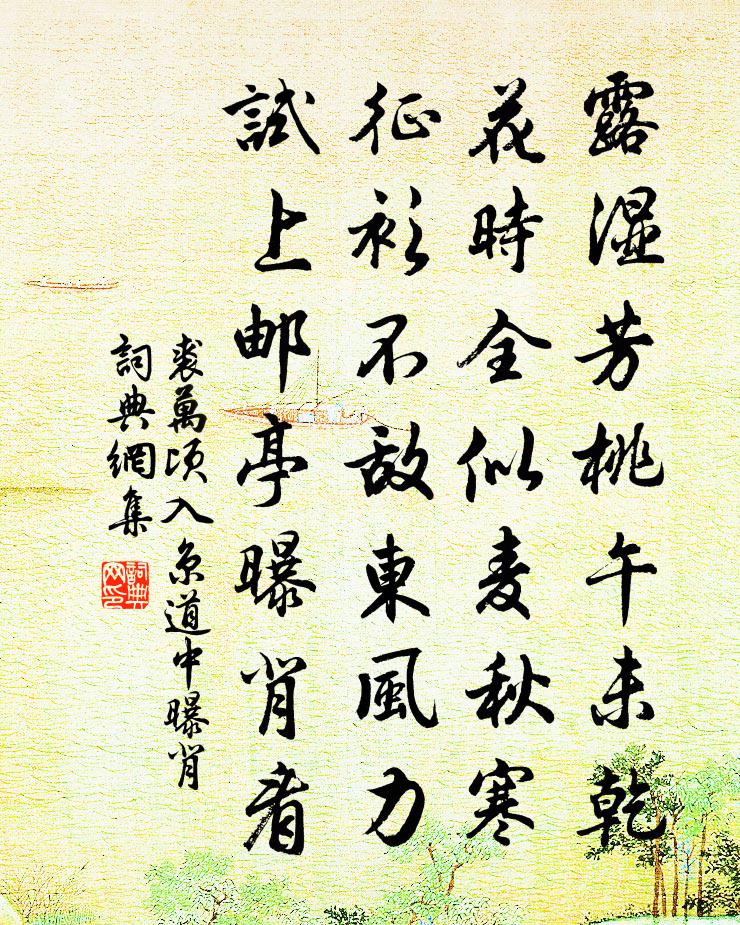 露湿芳桃午未乾
花時全似麦秋寒
征衫不敌東風力
試上邮亭曝背看
裘萬頃入京道中曝背
詞典網集
詞典网印